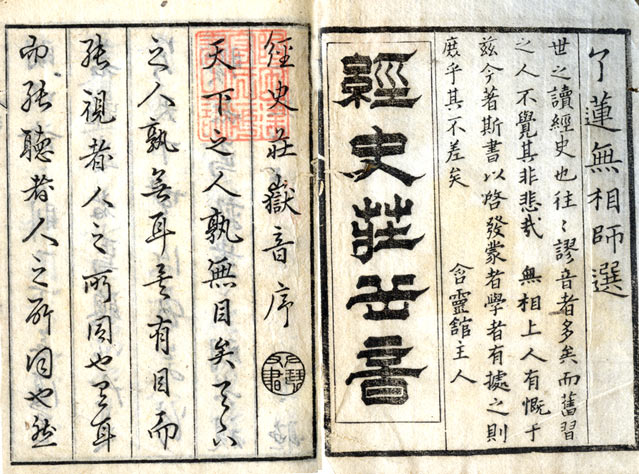 了蓮無相師選
世之讀經史也往〻謬音者多矣而舊習
之人不覺其非悲哉　無相上人有慨于
茲今著斯書以啓發蒙者學者有據之則
庶乎其不差矣　含靈舘主人
經史莊岳書
經史莊嶽音序
天下之人孰無目矣天下
之人孰無耳矣有目而
能視者人之所同也有耳
而能聽者人之所同也然